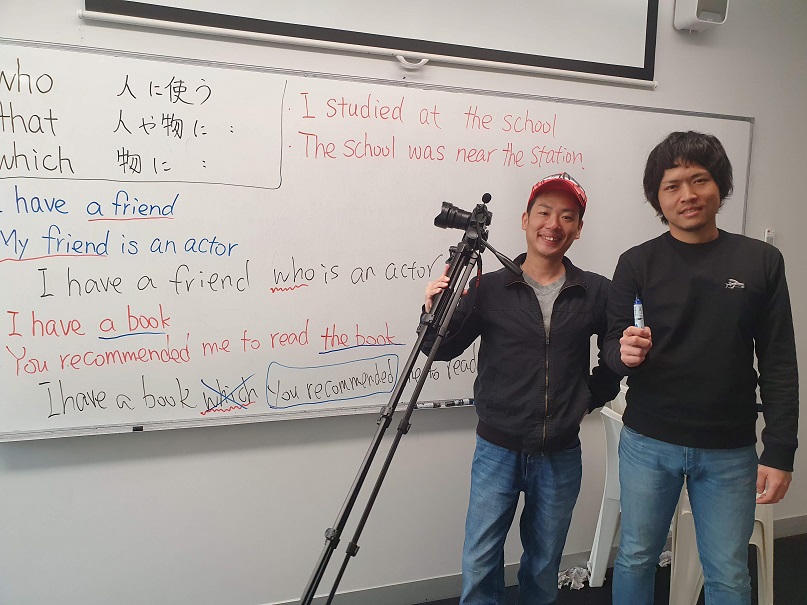 who 人に使う
that 人や物に :
which 物に :
I have a friend
My friend is an actor
I have a friend who is an actor
I have a book
You recommended me to read the book
I have a book which You recommended me to read
· I studied at the school
· The school was near the station.